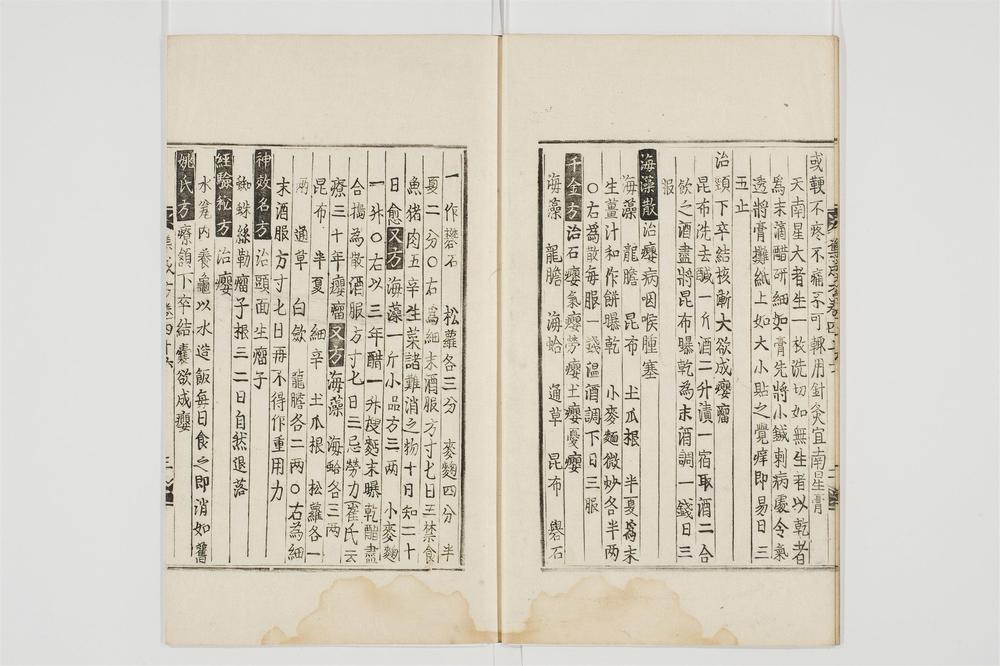 或鞕不疼不痛不可輙用針灸宜南星膏
天南星大者生一枚洗切如無生者以乾者
爲末滴醋研細如膏先將小鍼刺病處令氣
透將膏攤紙上如大小貼之覺痒即易日三
五止
治頸下卒結核漸大欲成癭瘤
昆布洗去醎一斤酒二升漬一宿取酒二合
飲之酒盡將昆布曝乾為末酒調一錢日三
服
海藻散治癭病咽喉腫塞
海藻 龍膽 昆布 土瓜根 半夏爲末
生薑汁和作餅曝乾 小麥麵微炒各半兩
○右爲散每服一錢温酒調下日三服
千金方治石癭氣癭勞癭土癭憂癭
海藻 龍膽 海蛤 通草 昆布 礜石
一作礬石 松蘿各三分 麥麴四分 半
夏二分○右爲細末酒服方寸七日三禁食
魚猪肉五辛生菜諸難消之物十日知二十
日愈又方海藻一斤小品方三兩 小麥麴
一升○右以三年醋一升溲麪末曝乾醋盡
合搗為散酒服方寸七日三忌勞力崔氏云
療三十年癭瘤又方海藻 海蛤各三兩
昆布 半夏 細辛 土瓜根 松蘿各一
兩 通草 白斂 龍膽各二兩○右為細
末酒服方寸七日再不得作重用力
神效名方治頭面生瘤子
蜘蛛絲勒瘤子根三二日自然退落
經驗秘方治癭
水窂内養龜以水造飯每日食之即消如舊
姚氏方療頷下卒結囊欲成癭
集成方卷四十六
三